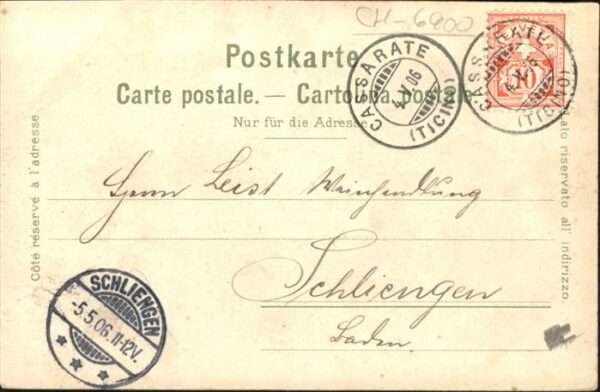 CH-6900
Postkarte.
Carte postale. — Cartolina postale.
Nur für die Adresse
CASSARATE
4.V.06
(TICINO)
CASSARATE
4.V.06
(TICINO)
10
Côté réservé à l'adresse
Lato riservato all' indirizzo.
Herrn Leist Weinhandlung
Schliengen
Baden.
SCHLIENGEN
-5.5.06.11-12V.